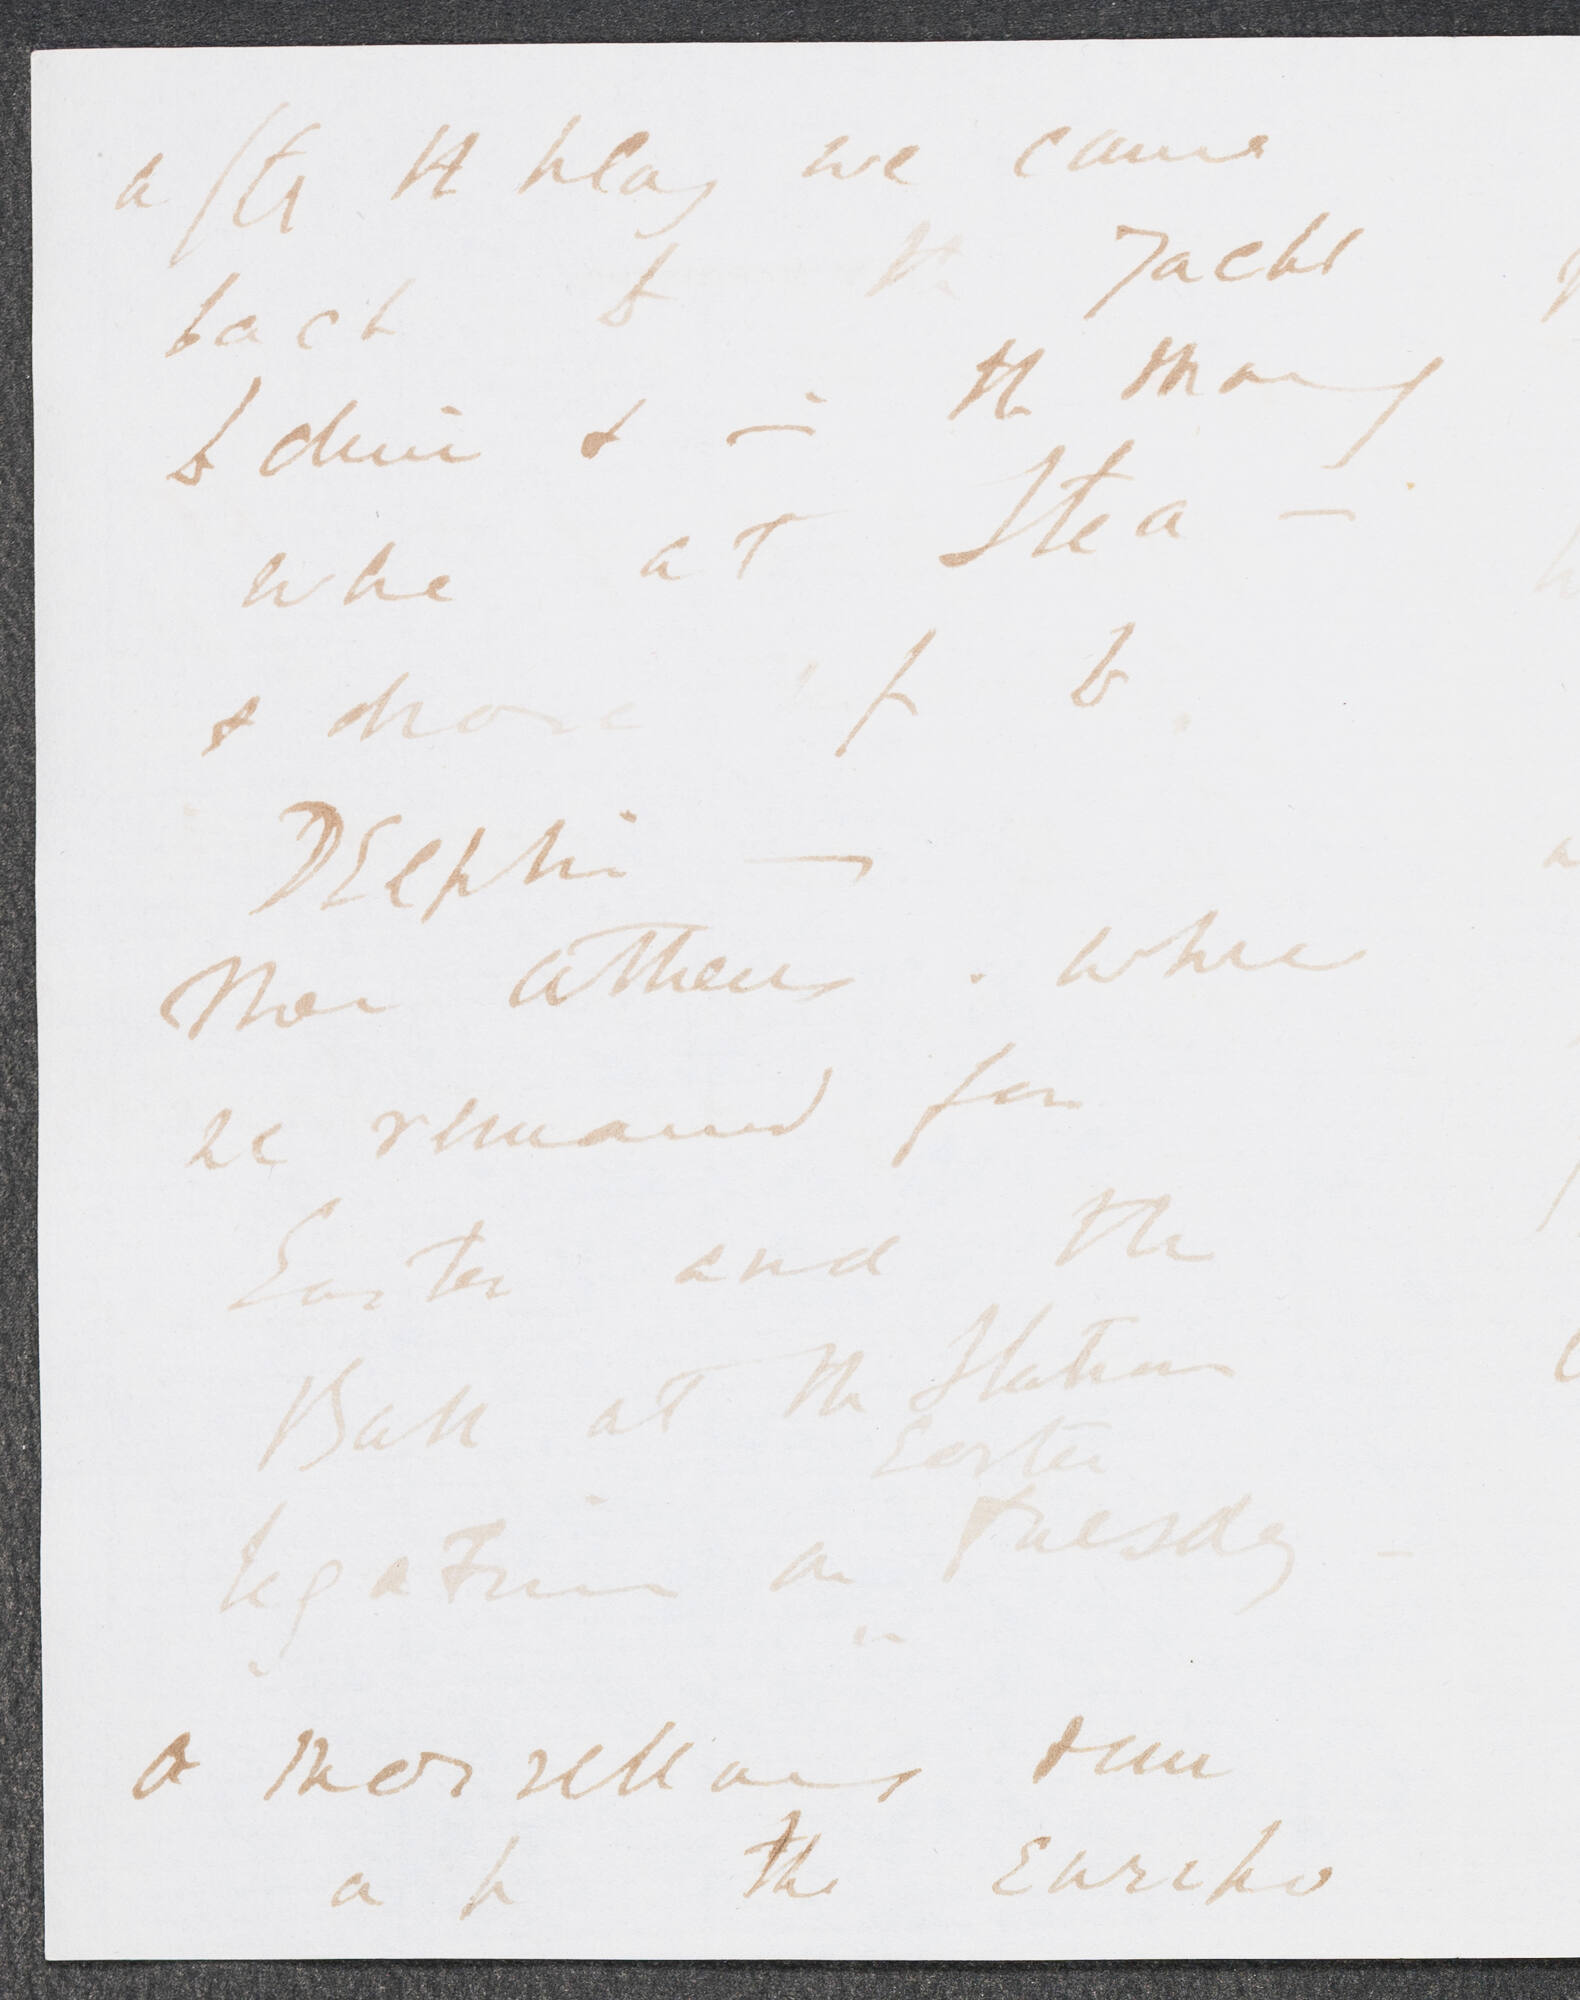 after the play we came
back to the Yacht
to dine & in the morning
woke at Itea —
& drove up to
Delphi —
Then Athens . where
we remained for
Easter and the
Ball at the Italian
Legation on Easter Tuesday —
a marvellous run
up the Euripo